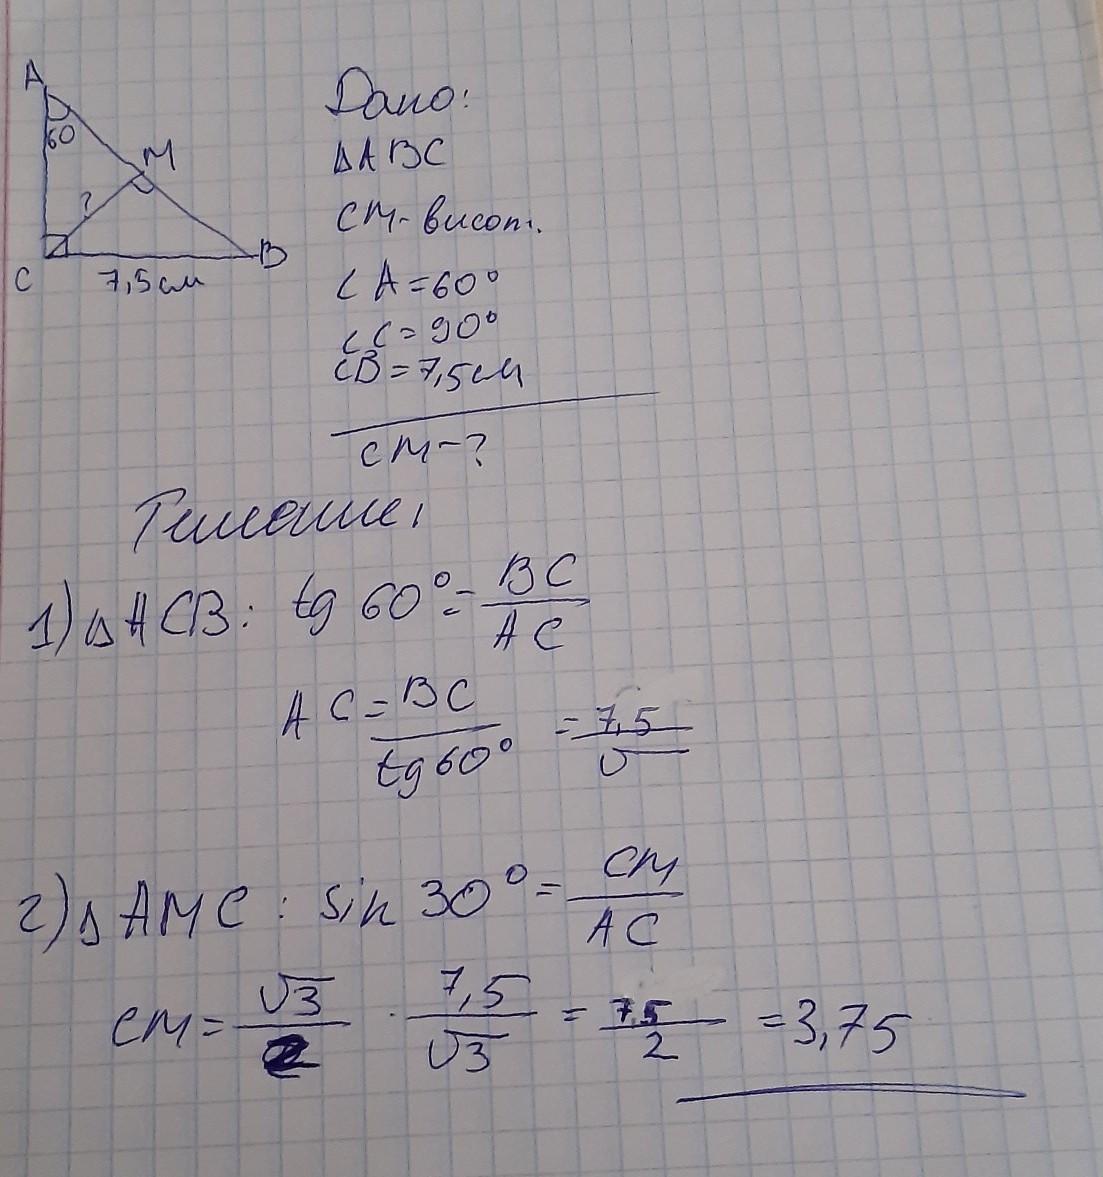 A
60
M
?
C
B
7,5см
Дано:
△ABC
CM- висот.
∠A=60°
∠C=90°
CB=7,5см
CM-?
1) △ACB: tg 60°= BC/AC
AC= BC/tg60° = 7,5/√
2) △AMC: sin 30°= CM/AC
CM= √3/2 · 7,5/√3 = 7,5/2 =3,75